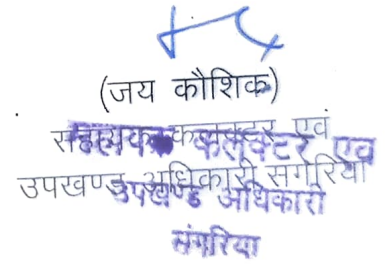 (जय कौशिक)
सहायक कलक्टर एवं
उपखण्ड अधिकारी संगरिया
सहायक कलक्टर एव
उपखण्ड अधिकारी
संगरिया